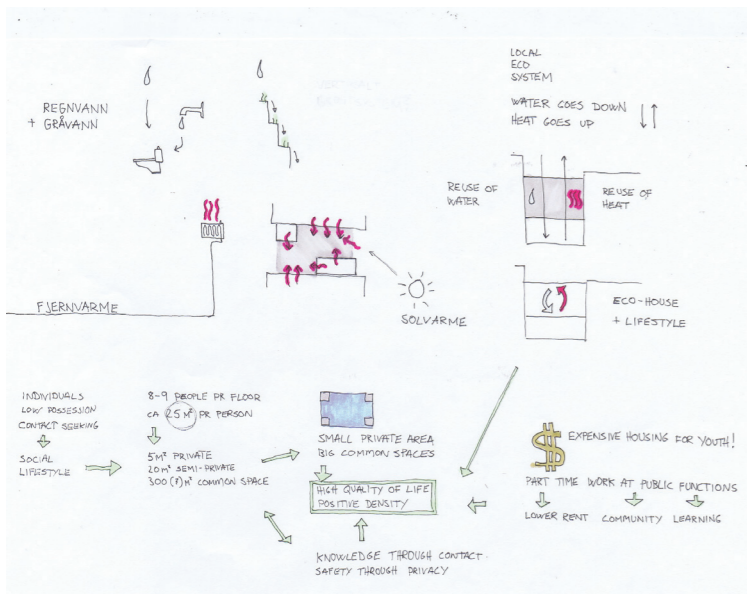 REGNVANN
+ GRÅVANN
LOCAL
ECO
SYSTEM
WATER COES DOWN
HEAT GOES UP
REUSE OF
WATER
REUSE OF
HEAT
FJERNVARME
SOLVARME
ECO-HOUSE
+ LIFESTYLE
INDIVIDUALS
LOW POSSESSION
CONTACT SEEKING
SOCIAL
LIFESTYLE
8-9 PEOPLE PR FLOOR
CA 25 M² PR PERSON
5M² PRIVATE
20M² SEMI-PRIVATE
300(?)M² COMMON SPACE
SMALL PRIVATE AREA
BIG COMMON SPACES
HIGH QUALITY OF LIFE
POSITIVE DENSITY
KNOWLEDGE THROUGH CONTACT
SAFETY THROUGH PRIVACY
$ EXPENSIVE HOUSING FOR YOUTH!
PART TIME WORK AT PUBLIC FUNCTIONS
LOWER RENT COMMUNITY LEARNING